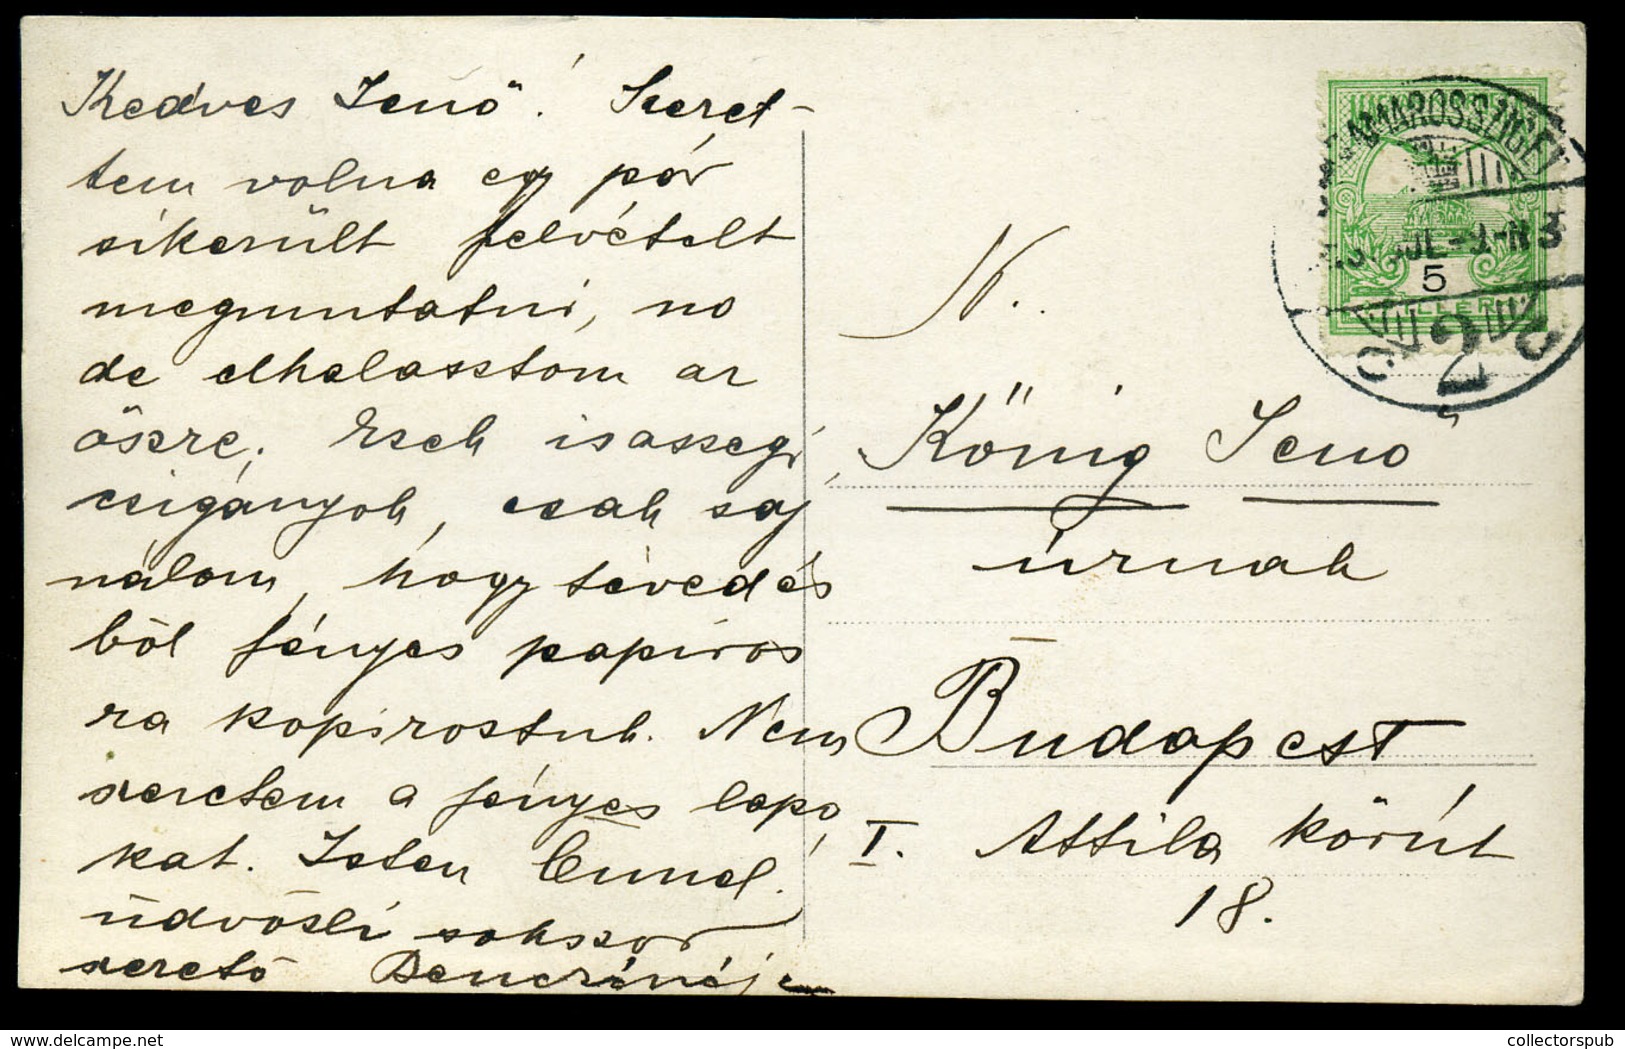 Kedves Jenő! Szeret-
tem volna egy pár
sikerült felvételt
megmutatni, no
de elhalasztom az
őszre. Ezek isaszegi
czigányok, csak saj
nálom, hogy tévedés
ből fényes papiros
ra kopiroztuk. Nem
szeretem a fényes lapo
kat. Isten
üdvözli sokszor
szerető
MÁRAMAROSSZIGET
JUL
5
FILLÉR
2
N.
König Jenő
úrnak
Budapest
I. Attila körút
18.
delcampe.net
collectorspub